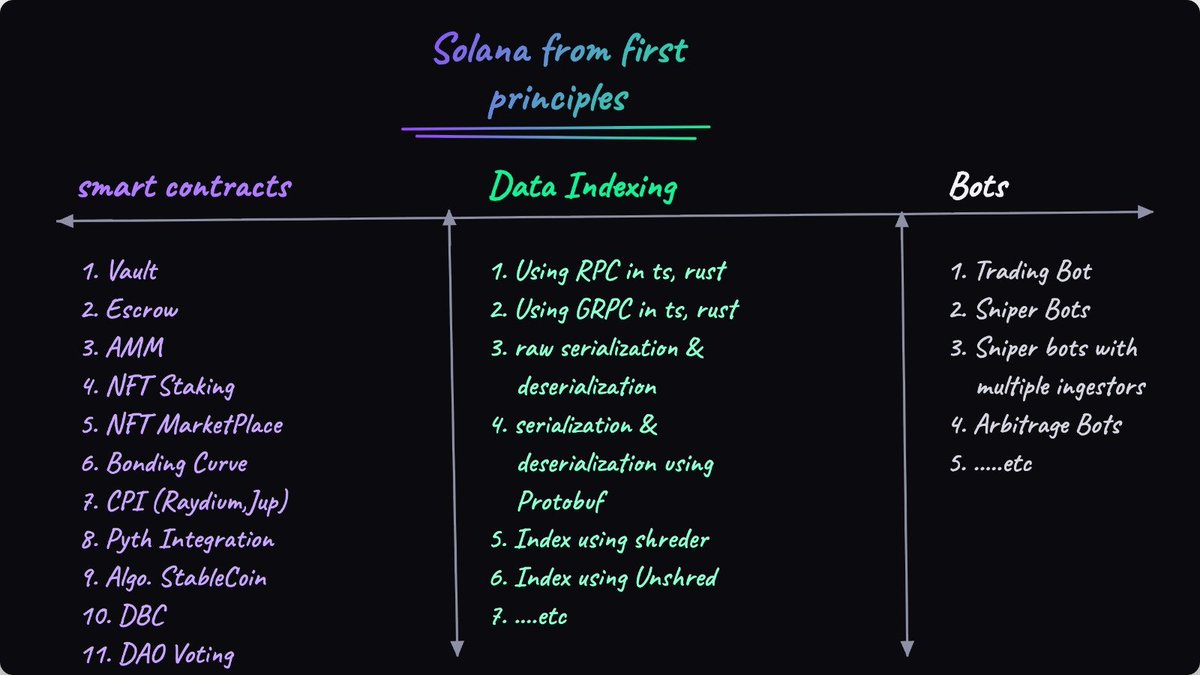 Solana from first
principles
smart contracts
1. Vault
2. Escrow
3. AMM
4. NFT Staking
5. NFT MarketPlace
6. Bonding Curve
7. CPI (Raydium,Jup)
8. Pyth Integration
9. Algo. StableCoin
10. DBC
11. DAO Voting
Data Indexing
1. Using RPC in ts, rust
2. Using GRPC in ts, rust
3. raw serialization &
deserialization
4. serialization &
deserialization using
Protobuf
5. Index using shreder
6. Index using Unshred
7. ....etc
Bots
1. Trading Bot
2. Sniper Bots
3. Sniper bots with
multiple ingestors
4. Arbitrage Bots
5. .....etc